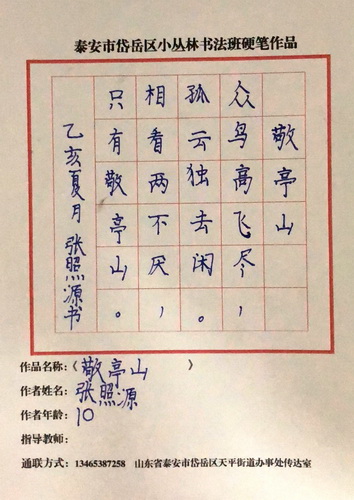 泰安市岱岳区小丛林书法班硬笔作品
敬亭山
众鸟高飞尽，
孤云独去闲。
相看两不厌，
只有敬亭山。
乙亥夏月张照源书
作品名称：（敬亭山）
作者姓名：张照源
作者年龄：10
指导教师：
通联方式：13465387258 山东省泰安市岱岳区天平街道办事处传达室